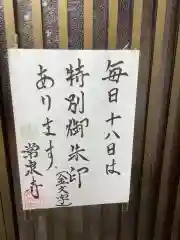 毎日十八日は
特別御朱印
(金文字)
あります
常泉寺